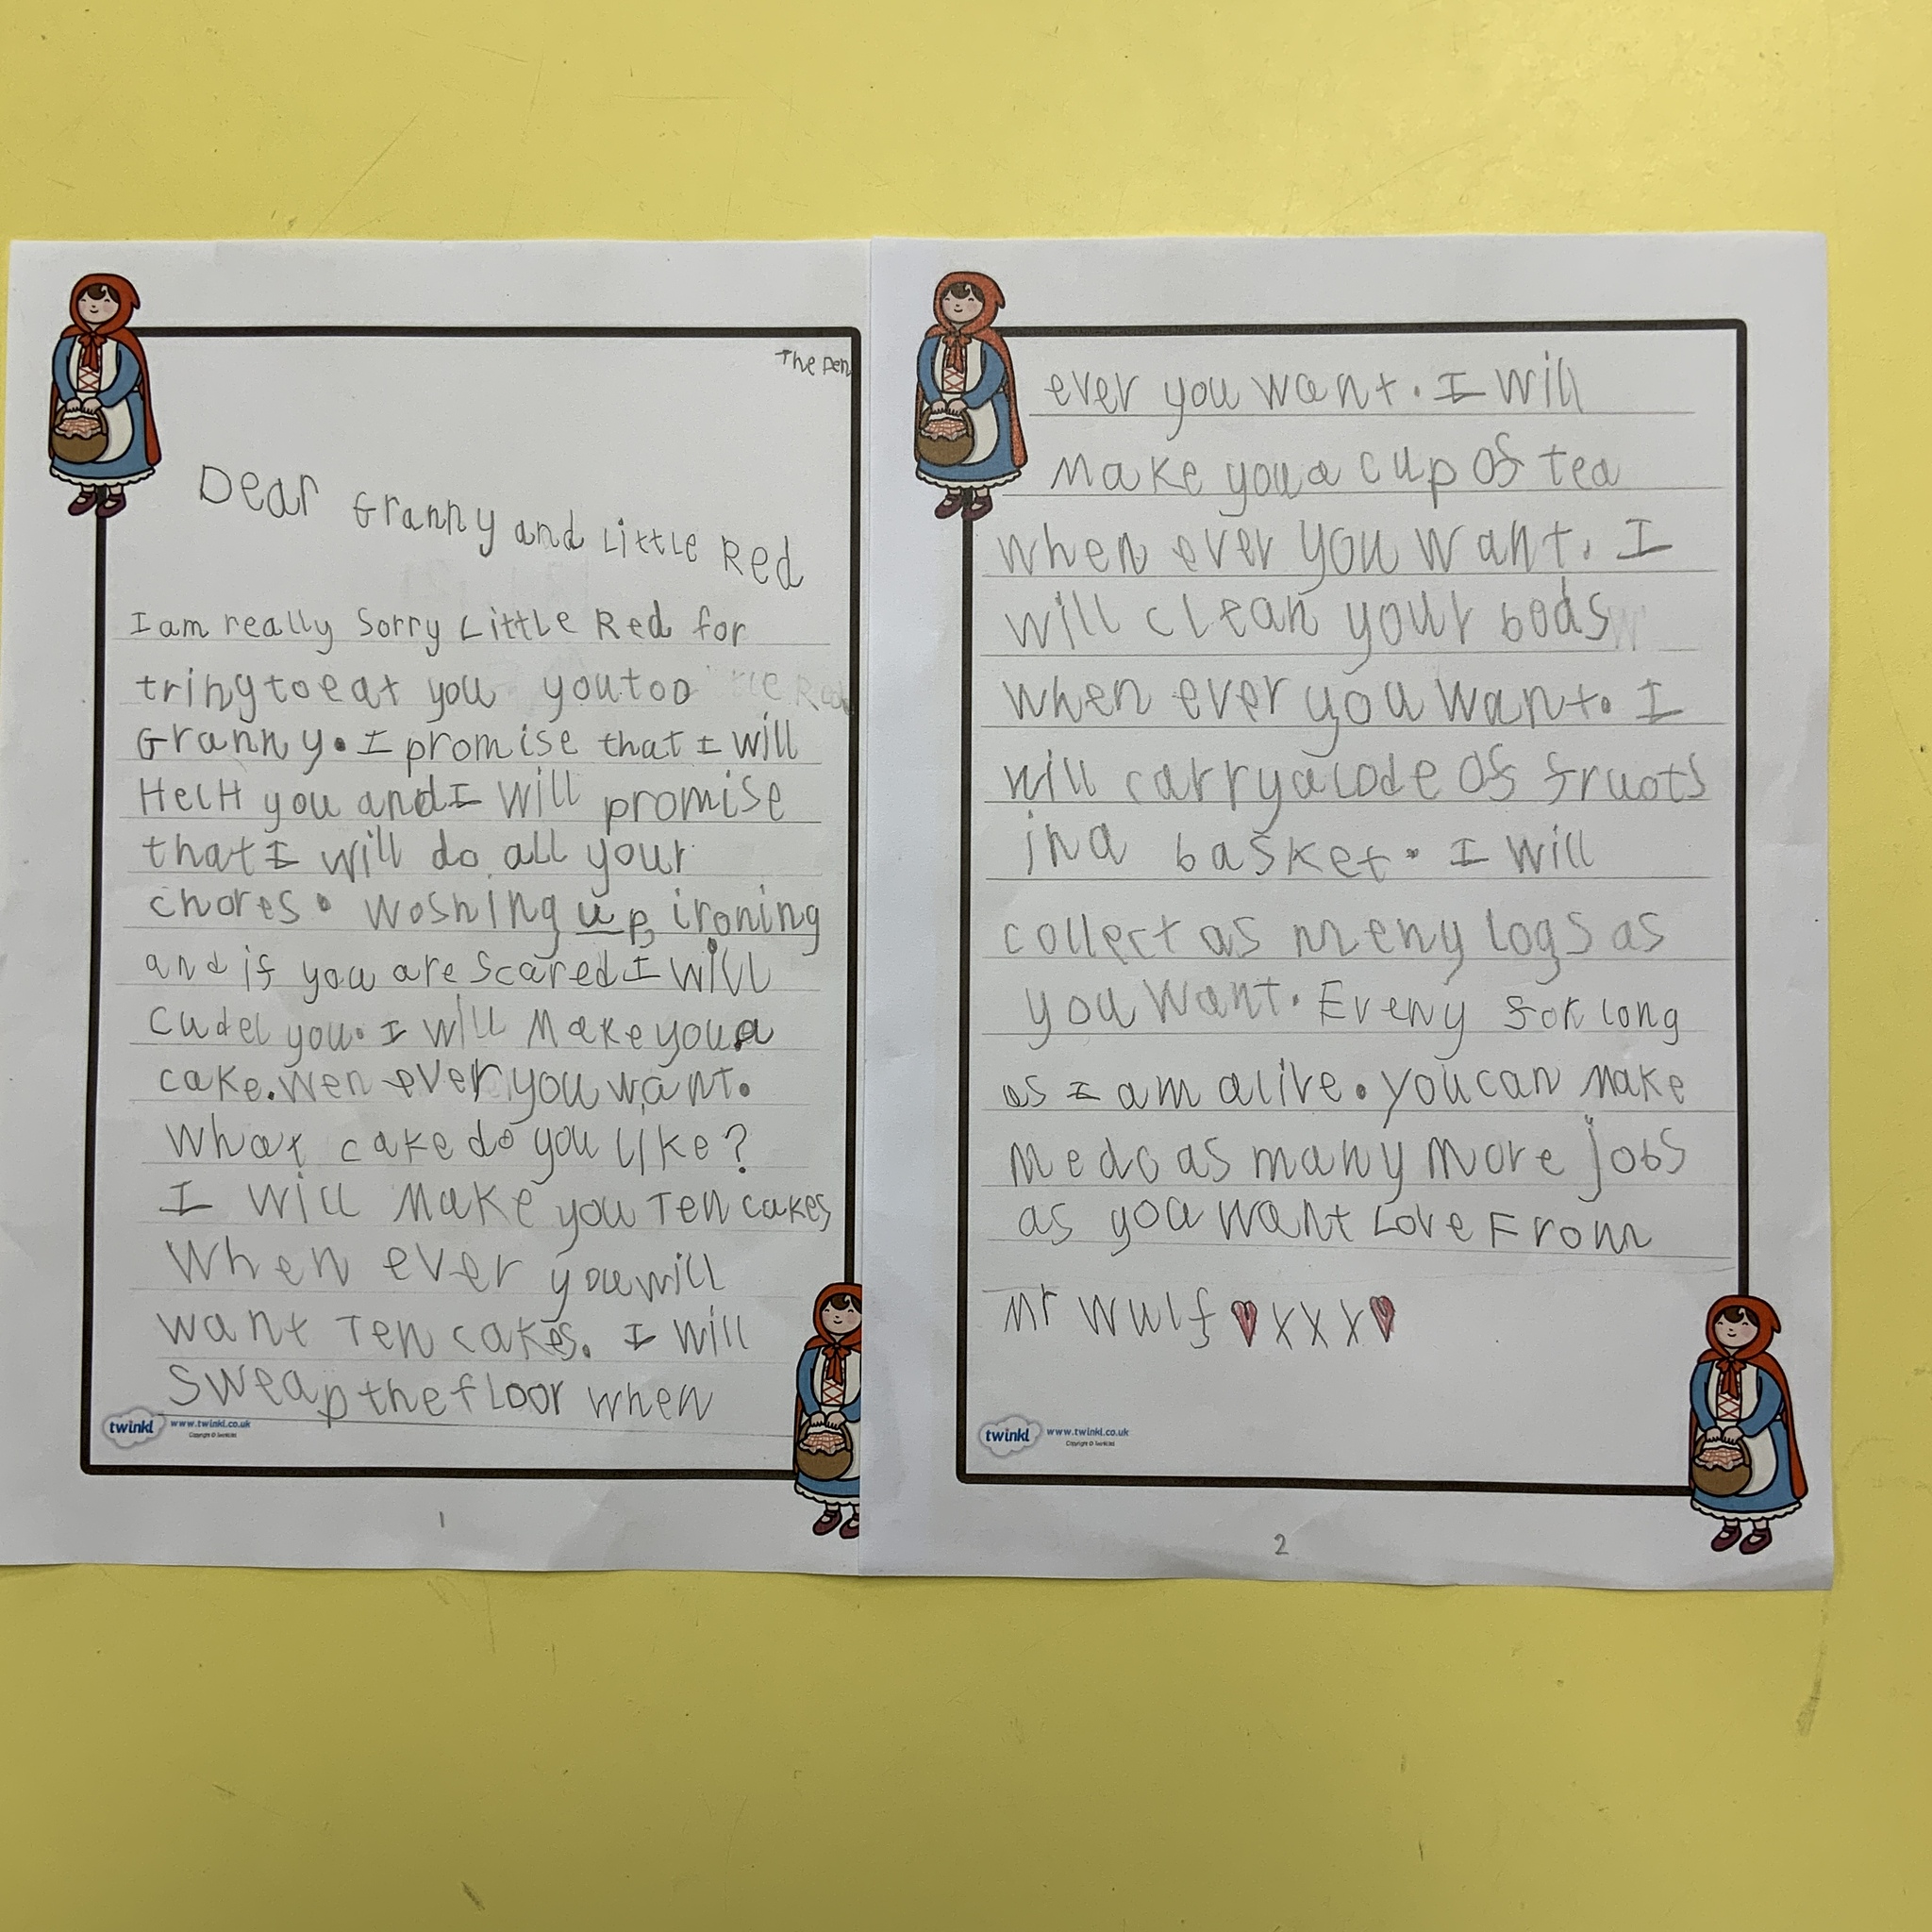 The pen
Dear Granny and Little Red
I am really Sorry Little Red for
tring to eat you you too
Granny. I promise that I will
HelH you and I will promise
that I will do all your
chores. woshing up, ironing
and if you are scared I will
cudel you. I will Make you a
cake. wen ever you want.
What cake do you like?
I will Make you Ten cakes
When ever you will
want Ten cakes. I will
Sweap the floor when
twinkl www.twinkl.co.uk
1
ever you want. I will
Make you a cup of tea
when ever you want. I
will clean your bods
when ever you want. I
will carry a lode of fruots
in a basket. I will
collect as meny logs as
you want. Eveny for long
as I am alive. you can Make
Me do as many More jobs
as you want Love From
Mr Wulf ♥ x x x ♥
twinkl www.twinkl.co.uk
2